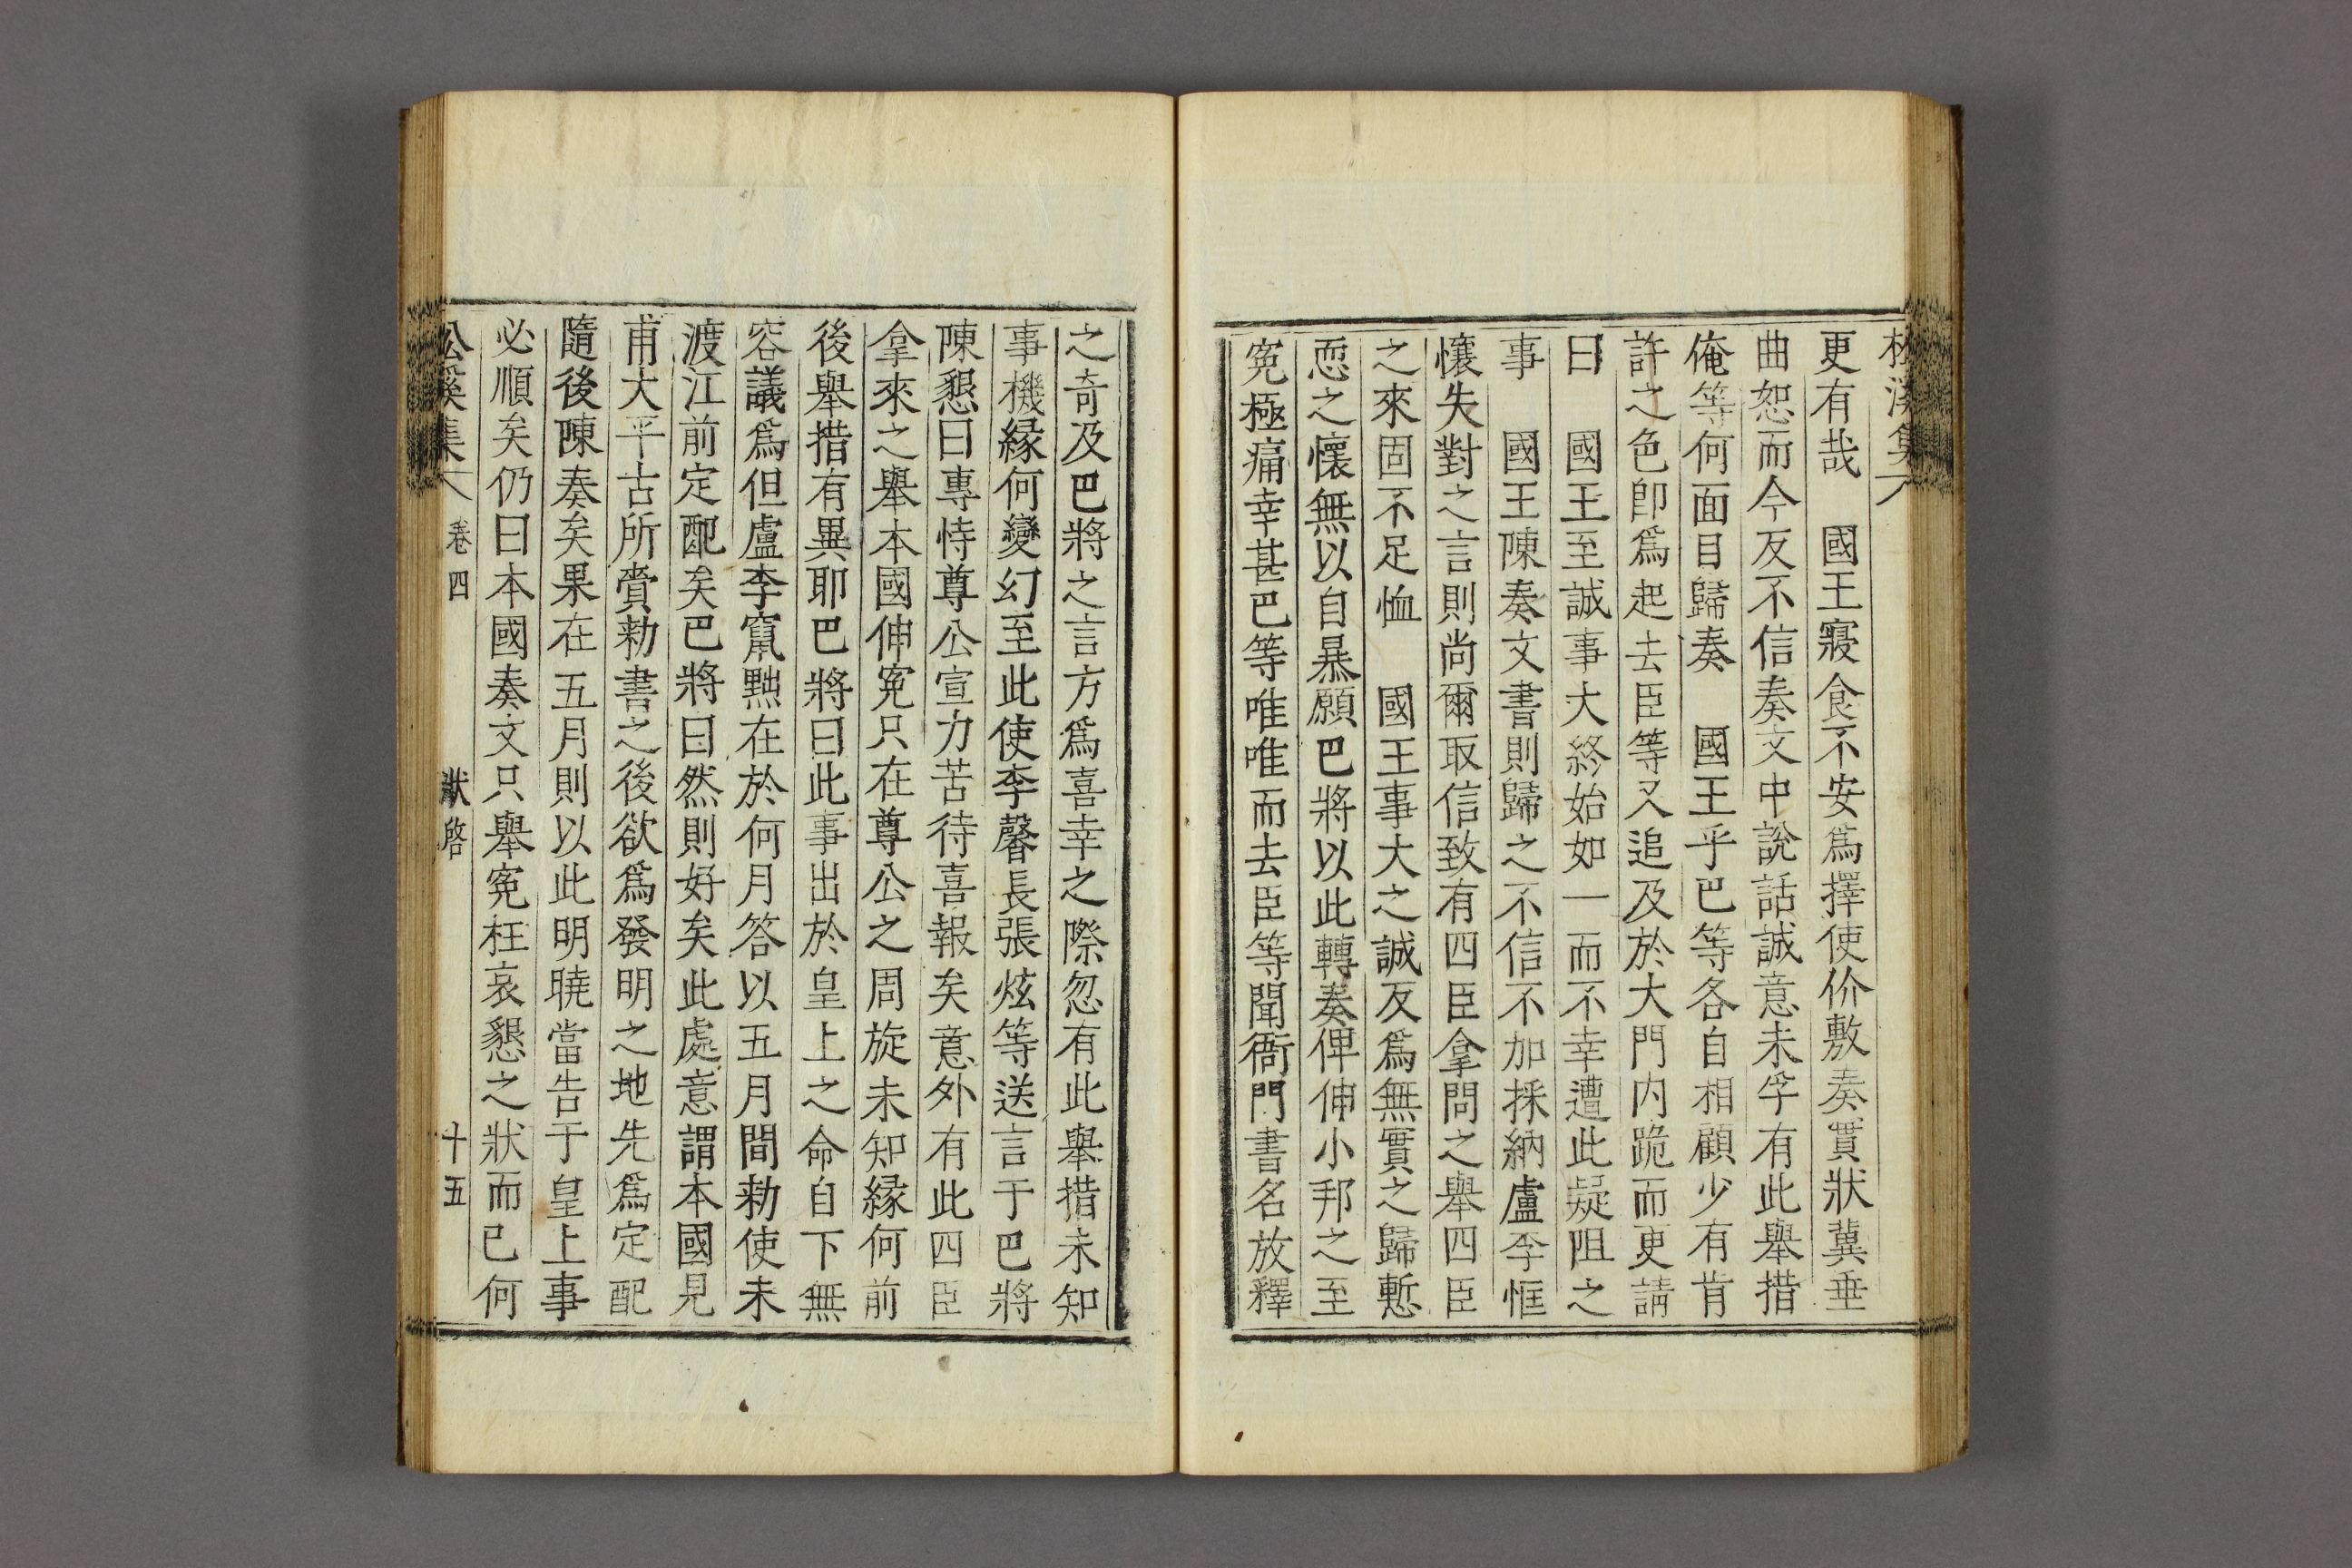 更有哉　國王寢食不安爲擇使价敷奏實狀冀垂
曲恕而今反不信奏文中說話誠意未孚有此擧措
俺等何面目歸奏　國王乎巴等各自相顧少有肯
許之色卽爲起去臣等又追及於大門內跪而更請
曰　國王至誠事大終始如一而不幸遭此疑阻之
事　國王陳奏文書則歸之不信不加採納盧李恇
懹失對之言則尙爾取信致有四臣拿問之擧四臣
之來固不足恤　國王事大之誠反爲無實之歸慙
恧之懷無以自暴願巴將以此轉奏俾伸小邦之至
寃極痛幸甚巴等唯唯而去臣等聞衙門書名放釋
之奇及巴將之言方爲喜幸之際忽有此擧措未知
事機緣何變幻至此使李馨長張炫等送言于巴將
陳懇曰專恃尊公宣力苦待喜報矣意外有此四臣
拿來之擧本國伸寃只在尊公之周旋未知緣何前
後擧措有異耶巴將曰此事出於皇上之命自下無
容議爲但盧李竄黜在於何月答以五月間勅使未
渡江前定配矣巴將曰然則好矣此處意謂本國見
甫大平古所賫勅書之後欲爲發明之地先爲定配
隨後陳奏矣果在五月則以此明曉當告于皇上事
必順矣仍曰本國奏文只擧寃枉哀懇之狀而已何
松溪集 卷四 狀啓 十五